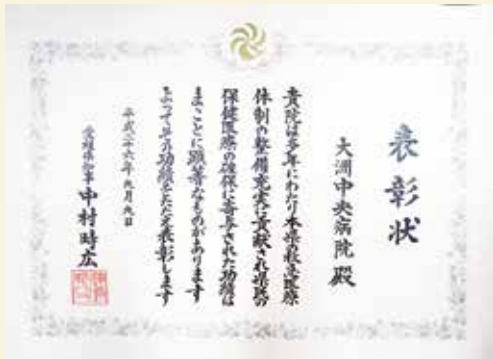 表彰状
大洲中央病院殿
貴院は多年にわたり本県の救急医療
体制の整備充実に貢献され県民の
保健医療の確保に寄与された功績は
まことに顕著なものがあります
よつてその功績をたたえ表彰します
平成二十六年九月九日
愛媛県知事 中村時広